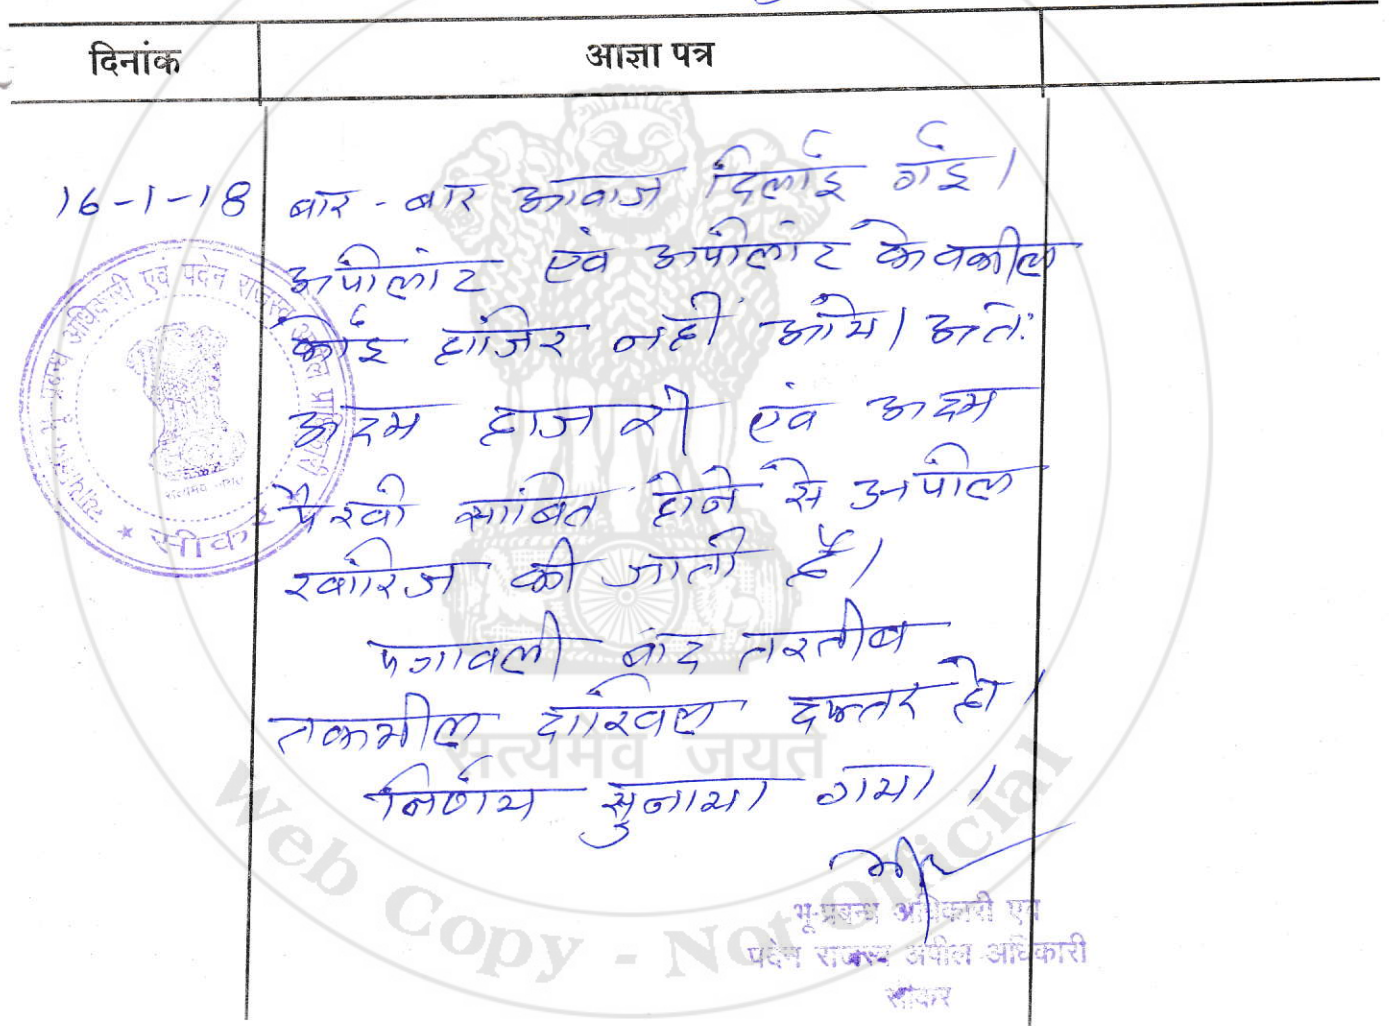 दिनांक आज्ञा पत्र
16-1-18 बार - बार आवाज दिलाई गई।
अपीलांट एवं अपीलांट के वकील
कोई हाजिर नहीं आये। अतः
अदम हाजरी एवं अदम
पैरवी साबित होने से अपील
खारिज की जाती है।
पत्रावली बाद तरतीब
तकमील दाखिल दफ्तर हो।
निर्णय सुनाया गया।
भू-प्रबन्ध अधिकारी एवं
पदेन राजस्व अपील अधिकारी
सीकर
न्यायालय भू प्रबन्ध अधिकारी एवं पदेन राजस्व अपील प्राधिकारी
★ सीकर ★
सत्यमेव जयते
सत्यमेव जयते
Web Copy - Not Official